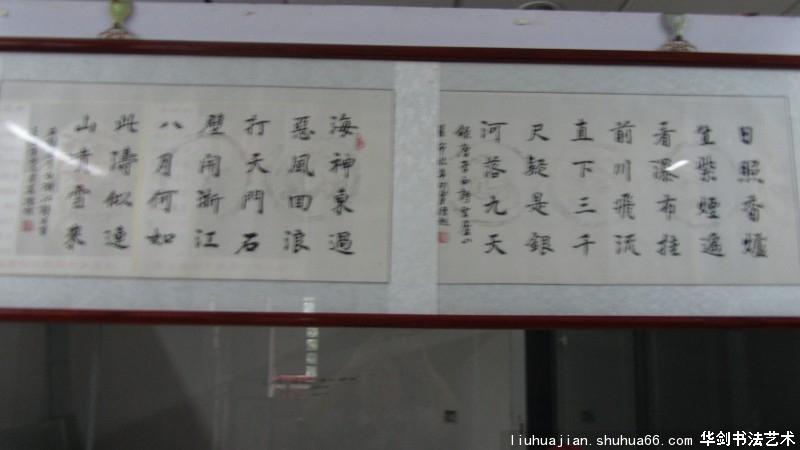 日照香爐
生紫煙遥
看瀑布挂
前川飛流
直下三千
尺疑是銀
河落九天
海神東過
惡風回浪
打天門石
壁開浙江
八月何如
此濤似連
山噴雪來
liuhuajian.shuhua66.com 华剑书法艺术